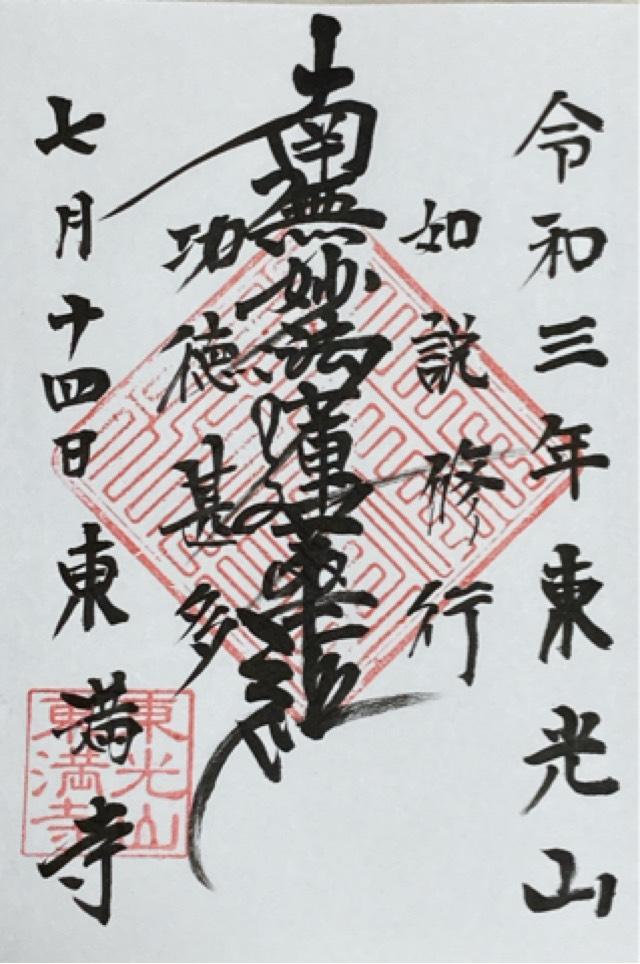 令和三年東光山
如説修行
南無妙法蓮華経
功徳甚多
七月十四日東満寺
東光山
東満寺